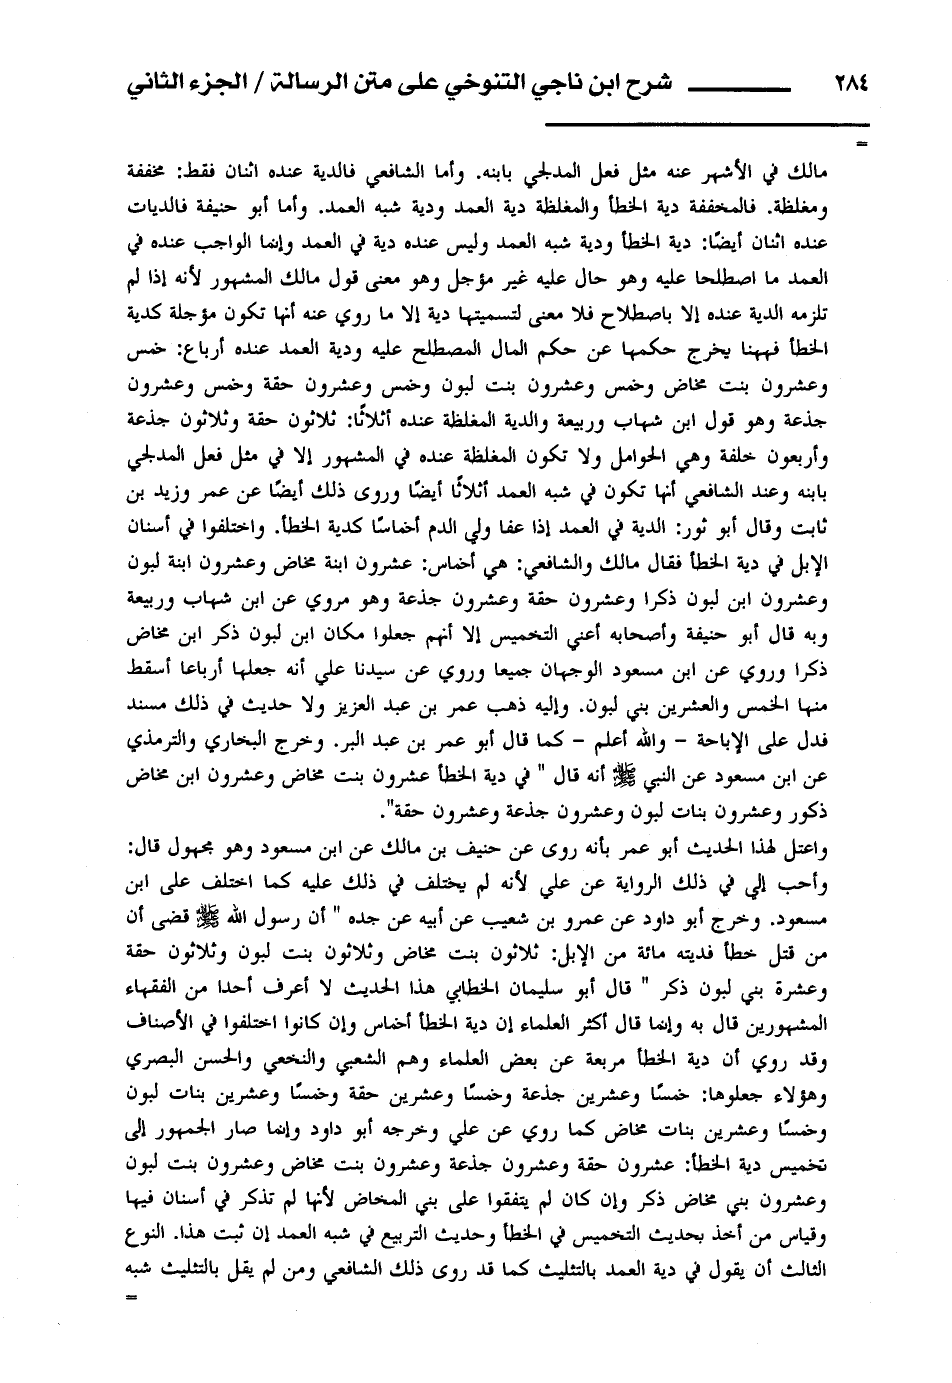 ٢٨٤ ـــــــــ شرح ابن ناجي التنوخي على متن الرسالة / الجزء الثاني
=
مالك في الأشهر عنه مثل فعل المدلجي بابنه. وأما الشافعي فالدية عنده اثنان فقط: مخففة
ومغلظة. فالمخففة دية الخطأ والمغلظة دية العمد ودية شبه العمد. وأما أبو حنيفة فالديات
عنده اثنان أيضًا: دية الخطأ ودية شبه العمد وليس عنده دية في العمد وإنما الواجب عنده في
العمد ما اصطلحا عليه وهو حال عليه غير مؤجل وهو معنى قول مالك المشهور لأنه إذا لم
تلزمه الدية عنده إلا باصطلاح فلا معنى لتسميتها دية إلا ما روي عنه أنها تكون مؤجلة كدية
الخطأ فههنا يخرج حكمها عن حكم المال المصطلح عليه ودية العمد عنده أرباع: خمس
وعشرون بنت مخاض وخمس وعشرون بنت لبون وخمس وعشرون حقة وخمس وعشرون
جذعة وهو قول ابن شهاب وربيعة والدية المغلظة عنده أثلاثًا: ثلاثون حقة وثلاثون جذعة
وأربعون خلفة وهي الحوامل ولا تكون المغلظة عنده في المشهور إلا في مثل فعل المدلجي
بابنه وعند الشافعي أنها تكون في شبه العمد أثلاثًا أيضًا وروى ذلك أيضًا عن عمر وزيد بن
ثابت وقال أبو ثور: الدية في العمد إذا عفا ولي الدم أخماسًا كدية الخطأ. واختلفوا في أسنان
الإبل في دية الخطأ فقال مالك والشافعي: هي أخماس: عشرون ابنة مخاض وعشرون ابنة لبون
وعشرون ابن لبون ذكرا وعشرون حقة وعشرون جذعة وهو مروي عن ابن شهاب وربيعة
وبه قال أبو حنيفة وأصحابه أعني التخميس إلا أنهم جعلوا مكان ابن لبون ذكر ابن مخاض
ذكرا وروي عن ابن مسعود الوجهان جميعا وروي عن سيدنا علي أنه جعلها أرباعا أسقط
منها الخمس والعشرين بني لبون. وإليه ذهب عمر بن عبد العزيز ولا حديث في ذلك مسند
فدل على الإباحة – والله أعلم – كما قال أبو عمر بن عبد البر. وخرج البخاري والترمذي
عن ابن مسعود عن النبي ﷺ أنه قال " في دية الخطأ عشرون بنت مخاض وعشرون ابن مخاض
ذكور وعشرون بنات لبون وعشرون جذعة وعشرون حقة".
واعتل لهذا الحديث أبو عمر بأنه روى عن حنيف بن مالك عن ابن مسعود وهو مجهول قال:
وأحب إلي في ذلك الرواية عن علي لأنه لم يختلف في ذلك عليه كما اختلف على ابن
مسعود. وخرج أبو داود عن عمرو بن شعيب عن أبيه عن جده " أن رسول الله ﷺ قضى أن
من قتل خطأ فديته مائة من الإبل: ثلاثون بنت مخاض وثلاثون بنت لبون وثلاثون حقة
وعشرة بني لبون ذكر " قال أبو سليمان الخطابي هذا الحديث لا أعرف أحدا من الفقهاء
المشهورين قال به وإنما قال أكثر العلماء إن دية الخطأ أخماس وإن كانوا اختلفوا في الأصناف
وقد روي أن دية الخطأ مربعة عن بعض العلماء وهم الشعبي والنخعي والحسن البصري
وهؤلاء جعلوها: خمسًا وعشرين جذعة وخمسًا وعشرين حقة وخمسًا وعشرين بنات لبون
وخمسًا وعشرين بنات مخاض كما روي عن علي وخرجه أبو داود وإنما صار الجمهور إلى
تخميس دية الخطأ: عشرون حقة وعشرون جذعة وعشرون بنت مخاض وعشرون بنت لبون
وعشرون بني مخاض ذكر وإن كان لم يتفقوا على بني المخاض لأنها لم تذكر في أسنان فيها
وقياس من أخذ بحديث التخميس في الخطأ وحديث التربيع في شبه العمد إن ثبت هذا. النوع
الثالث أن يقول في دية العمد بالتثليث كما قد روى ذلك الشافعي ومن لم يقل بالتثليث شبه
=